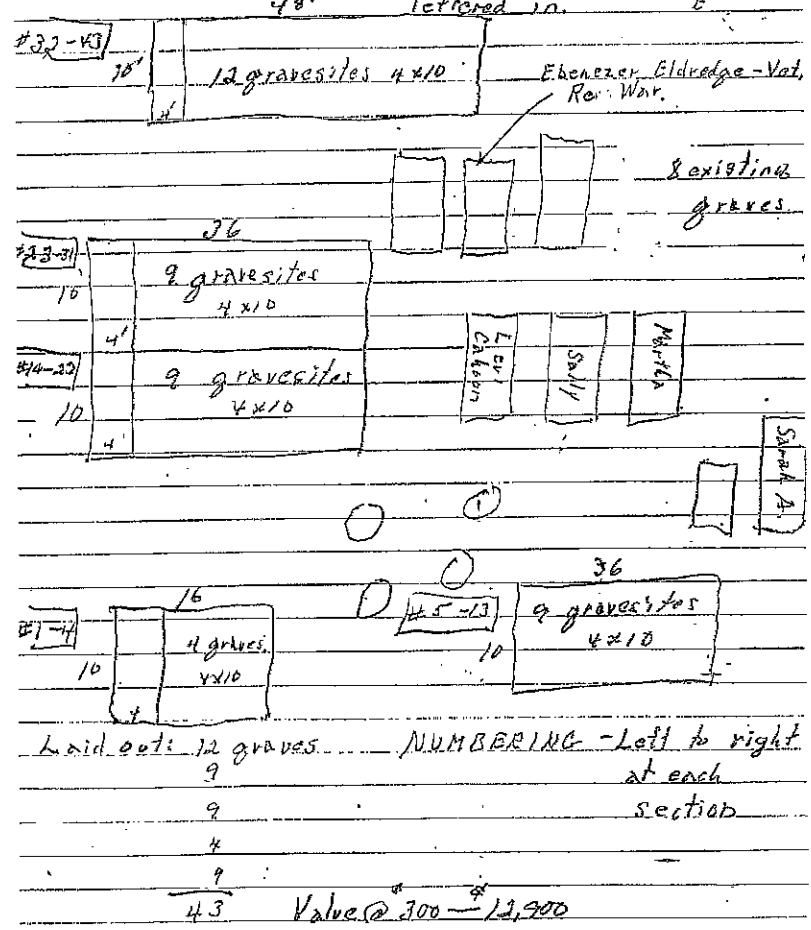 48' lettered in.
#32-43
10'
12 gravesites 4x10
4'
Ebenezer Eldredge - Vet,
Rev. War.
8 existing
graves
36
#23-31
10
9 gravesites
4x10
4'
#14-22
10
9 gravesites
4x10
4'
Levi
Cahoon
Sally
Martha
Sarah A.
16
#1-4
10
4 graves.
4x10
4
36
#5-13
10
9 gravesites
4x10
Laid out: 12 graves NUMBERING - Left to right
9 at each
9 section
4
9
43 Value @ $300 — $12,900